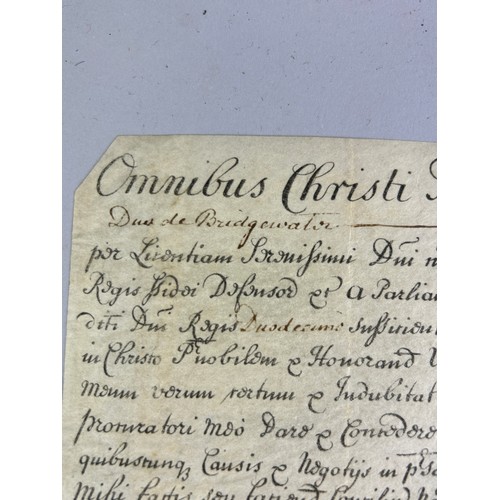 Omnibus Christi
Dux de Bridgewater
per Licentiam Serenissimi Dñi
Regis Fidei Defensor &c A Parlia
dicti Dñi Regis Duodecimo sufficien
in Christo Pnobilem & Honorand
meum verum certum & Indubitat
procuratori meo Dare & Concedere
quibuscunq Causis & Negotijs in
Mihi factis seu